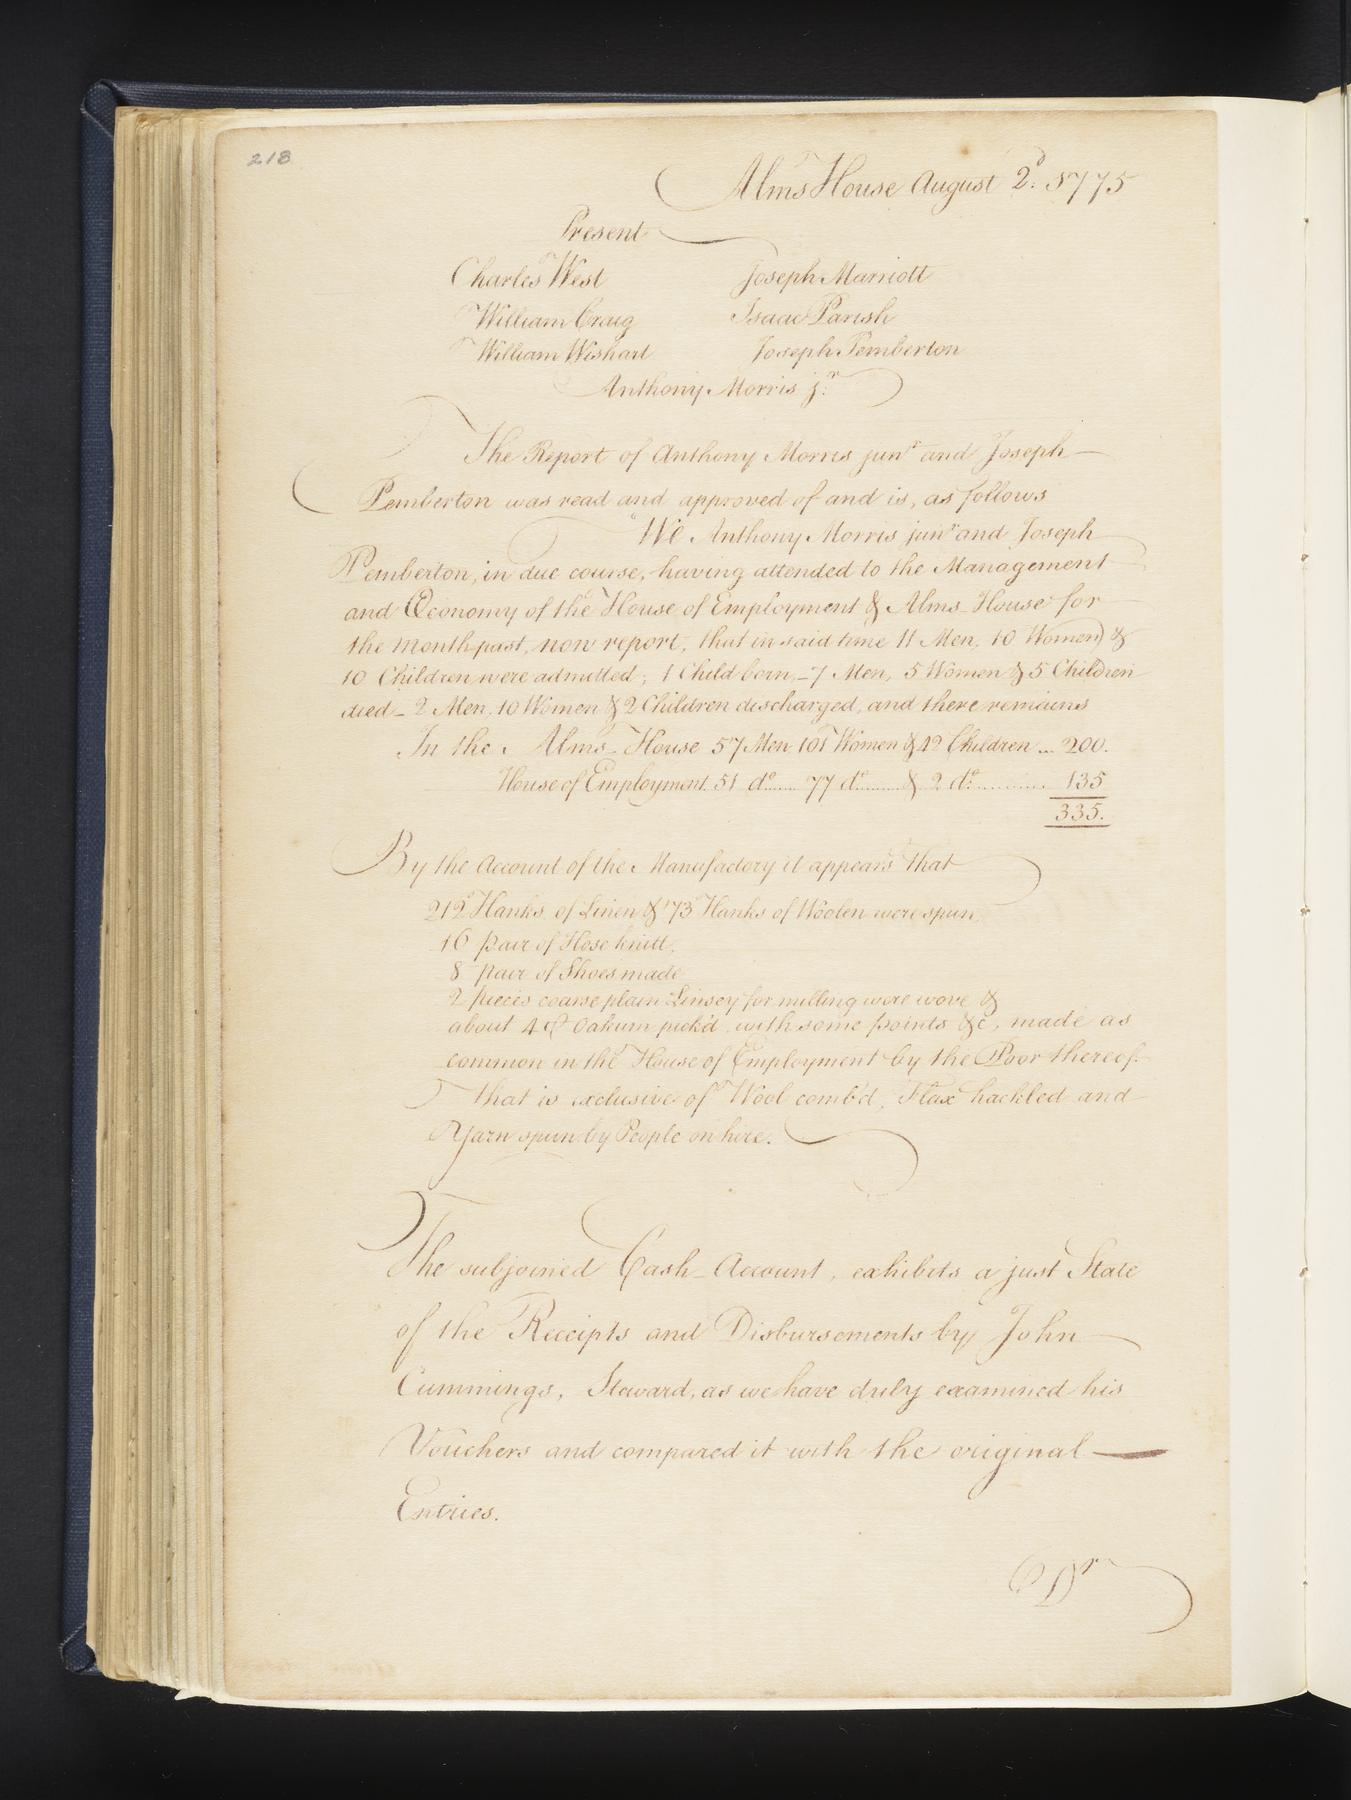 218
Alms House August 2d: 1775
Present
Charles West Joseph Marriott
William Craig Isaac Parish
William Wishart Joseph Pemberton
Anthony Morris jr.
The Report of Anthony Morris junr and Joseph
Pemberton was read and approved of and is, as follows
We Anthony Morris junr and Joseph
Pemberton, in due course, having attended to the Management
and Œconomy of the House of Employment & Alms-House for
the Month past, now report, that in said time 11 Men, 10 Women &
10 Children were admitted; 1 Child born,-7 Men, 5 Women & 5 Children
died- 2 Men, 10 Women & 2 Children discharged, and there remains
In the Alms-House 57 Men 101 Women & 42 Children ... 200.
House of Employment. 51 do...... 77 do........ & 2 do............. 135
335.
By the Account of the Manufactory it appears that
212 Hanks of Linen & 73 Hanks of Woolen were spun,
16 pair of Hose knitt,
8 pair of Shoes made
2 pieces coarse plain Linsey for milling were wove &
about 4 Oakum pick'd, with some points &c, made as
common in the House of Employment by the Poor thereof.
That is exclusive of Wool comb'd, Flax hackled and
Yarn spun by People on hire.
The subjoined Cash-Account, exhibits a just State
of the Receipts and Disbursements by John
Cummings, Steward, as we have duly examined his
Vouchers and compared it with the original
Entries.
Dr